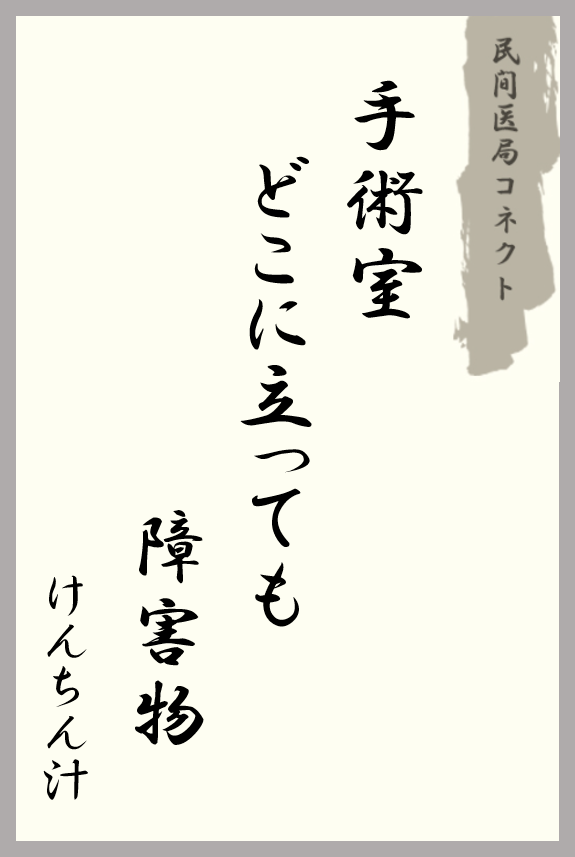 民間医局コネクト
手術室
どこに立っても
障害物
けんちん汁